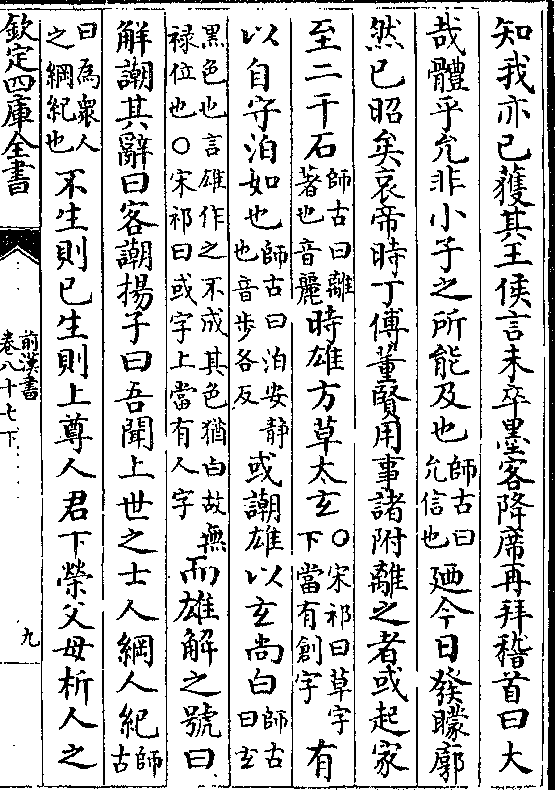 知我亦已獲其王侯言未卒墨客降席再拜稽首曰大
哉體乎允非小子之所能及也師古曰允信也廼今日發矇廓
然已昭矣哀帝時丁傅董賢用事諸附離之者或起家
至二千石師古曰離著也音麗時雄方草太玄○宋祁曰草字下當有創字有
以自守泊如也師古曰泊安静也音步各反或謿雄以玄尚白師古曰玄
黑色也言雄作之不成其色猶白故無祿位也○宋祁曰或字上當有人字而雄解之號曰
解謿其辭曰客謿揚子曰吾聞上世之士人綱人紀師古
曰為衆人之綱紀也不生則已生則上尊人君下榮父母析人之
欽定四庫全書
前漢書
卷八十七下
九